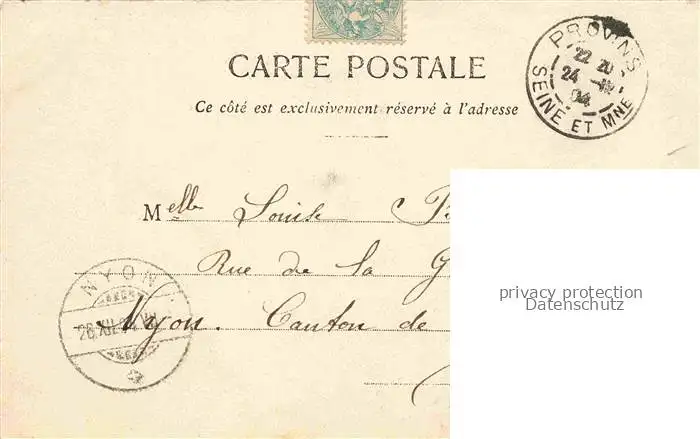 CARTE POSTALE
Ce côté est exclusivement réservé à l'adresse
PROVINS
22 20
24 - 12
04
SEINE ET MNE
Melle Louise
Rue de la G
Nyon. Canton de
NYON
privacy protection
Datenschutz